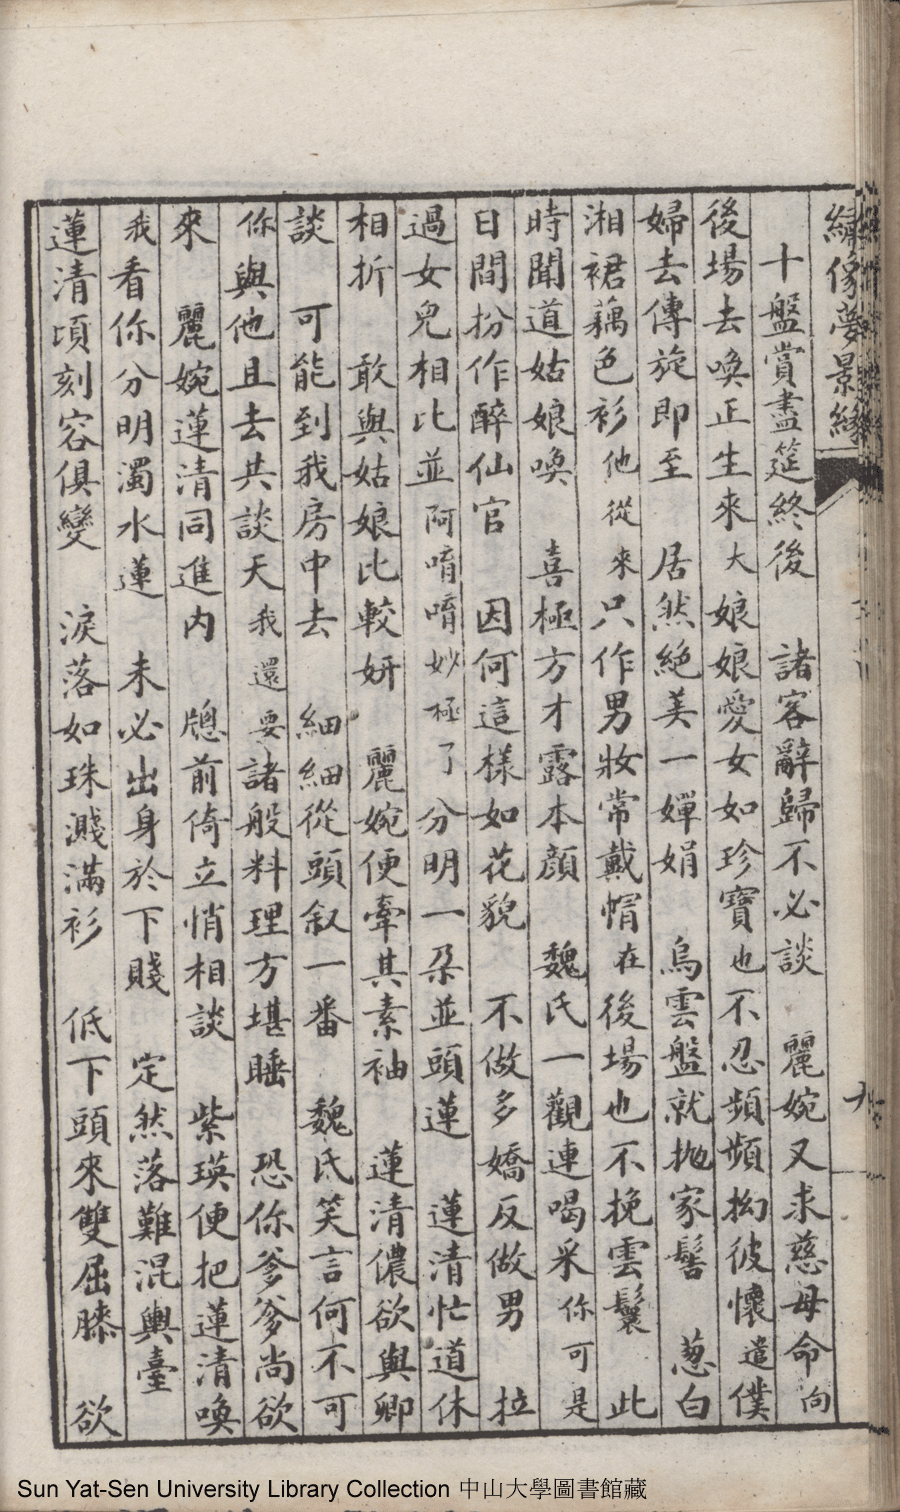 繡像夢景緣
十盤賞盡筵終後　諸客辭歸不必談　麗婉又求慈母命向
後場去喚正生來大娘娘愛女如珍寶也不忍頻頻拗彼懷遣僕
婦去傳旋即至　居然絕美一嬋娟　烏雲盤就拋家髻　葱白
湘裙藕色衫他從來只作男妝常戴帽在後場也不挽雲鬟　此
時聞道姑娘喚　喜極方才露本顏　魏氏一觀連喝采你可是
日間扮作醉仙官　因何這樣如花貌　不做多嬌反做男　拉
過女兒相比並阿唷唷妙極了分明一朶並頭蓮　蓮清忙道休
相折　敢與姑娘比較妍　麗婉便牽其素袖　蓮清儂欲與卿
談　可能到我房中去　細細從頭叙一番　魏氏笑言何不可
你與他且去共談天我還要諸般料理方堪睡　恐你爹爹尚欲
來　麗婉蓮清同進內　牕前倚立悄相談　紫瑛便把蓮清喚
我看你分明濁水蓮　未必出身於下賤　定然落難混輿臺
蓮清頃刻容俱變　淚落如珠濺滿衫　低下頭來雙屈膝　欲
九
Sun Yat-Sen University Library Collection 中山大學圖書館藏